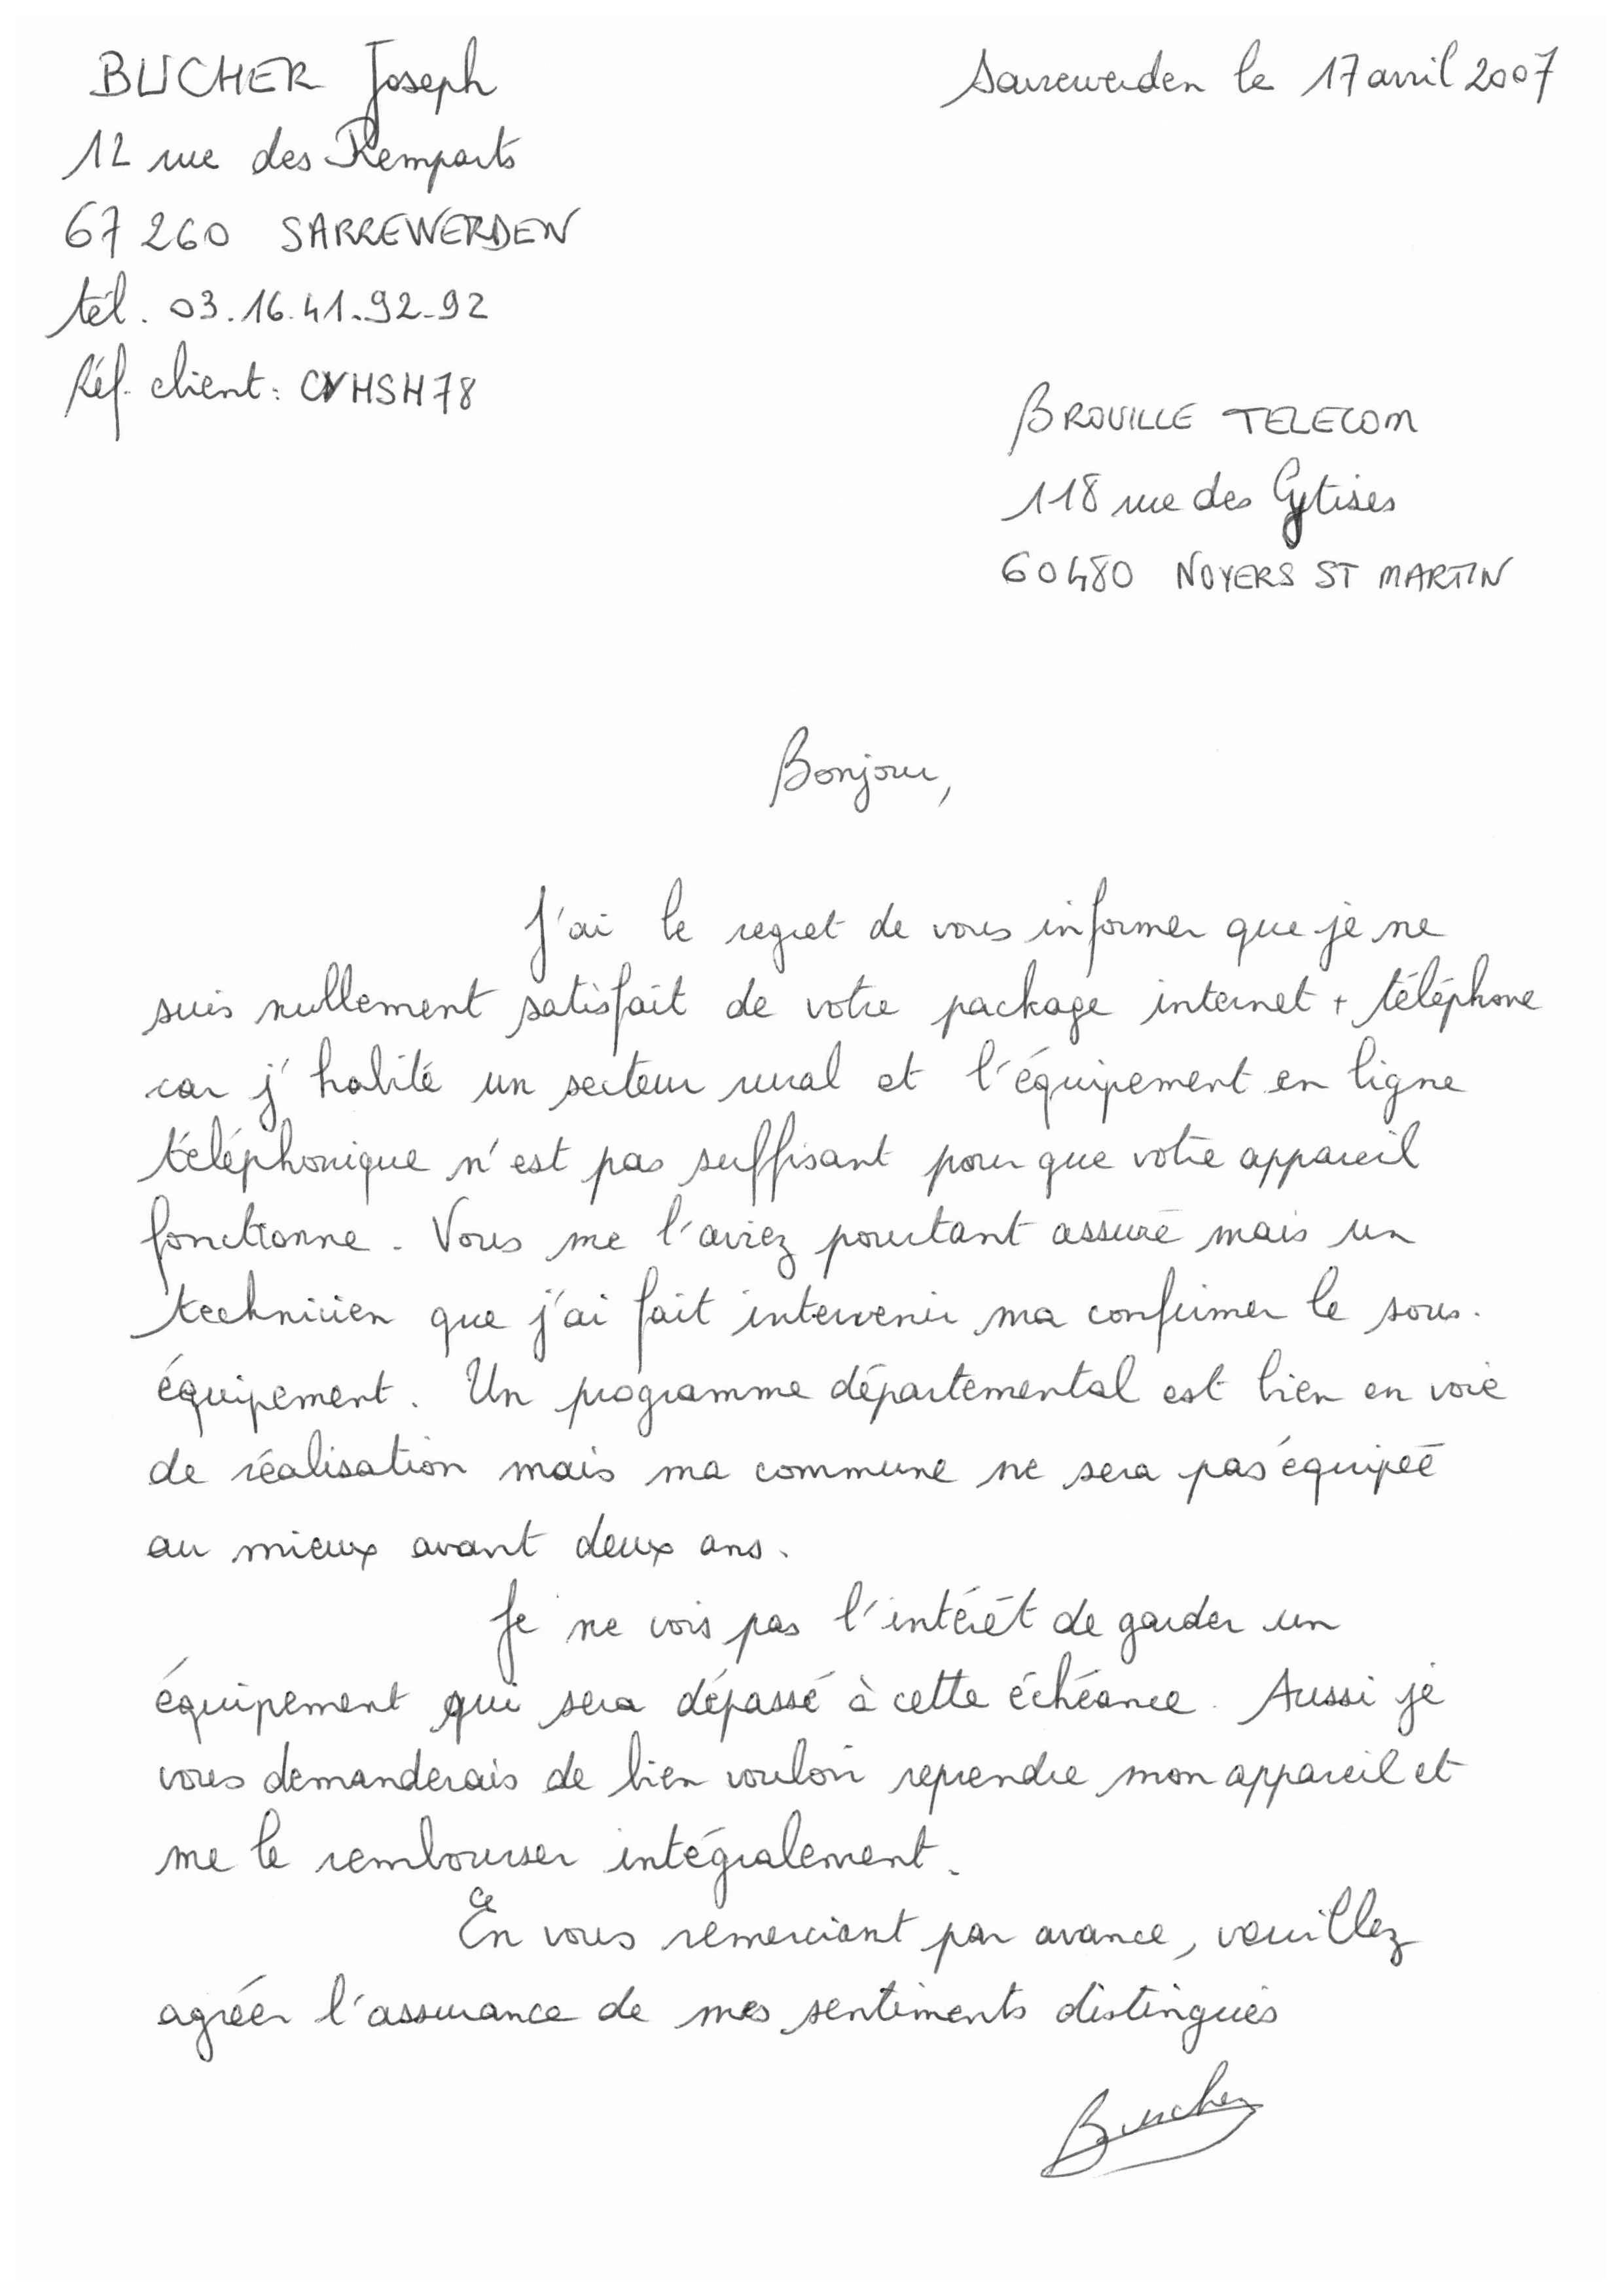 BUCHER Joseph
12 rue des Remparts
67 260 SARREWERDEN
tél. 03.16.41.92.92
Réf. client : CVHSH78
Sarrewerden le 17 avril 2007
BROUILLE TELECOM
118 rue des Cytises
60480 NOYERS ST MARTIN
Bonjour,
J'ai le regret de vous informer que je ne
suis nullement satisfait de votre package internet + téléphone
car j' habité un secteur rural et l'équipement en ligne
téléphonique n'est pas suffisant pour que votre appareil
fonctionne. Vous me l'aviez pourtant assuré mais un
technicien que j'ai fait intervenir ma confirmer le sous-
équipement. Un programme départemental est bien en voie
de réalisation mais ma commune ne sera pas équipée
au mieux avant deux ans.
Je ne vois pas l'intérêt de garder un
équipement qui sera dépassé à cette échéance. Aussi je
vous demanderais de bien vouloir reprendre mon appareil et
me le rembourser intégralement.
En vous remerciant par avance, veuillez
agréer l'assurance de mes sentiments distingués
Bucher